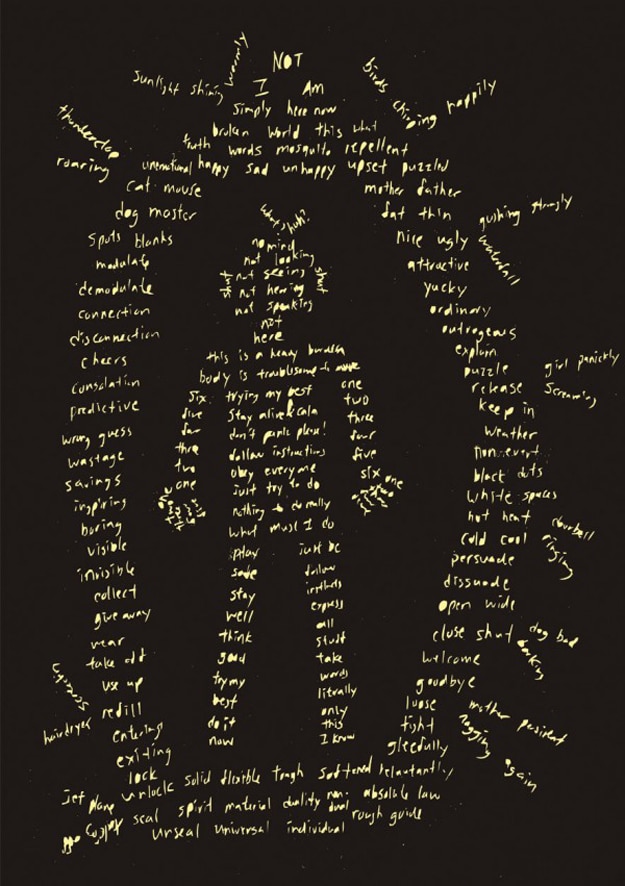 NOT
I Am
simply here now
broken world this what
truth words mosquito repellent
unemotional happy sad unhappy upset puzzled
sunlight shining warmly
birds chirping happily
thunderclap
roaring
cat mouse
dog master
spots blanks
modulate
demodulate
connection
disconnection
cheers
consolation
predictive
wrong guess
wastage
savings
inspiring
boring
visible
invisible
collect
give away
wear
take off
use up
refill
entering
exiting
lock
unlock solid flexible tough softened reluctantly
mother father
fat thin
nice ugly
attractive
yucky
ordinary
outrageous
explain
puzzle
release
keep in
weather
non event
black dots
white spaces
hot heat
cold cool
persuade
dissuade
open wide
close shut
welcome
goodbye
loose
tight
gleefully
gushing strongly
waterfall
girl panickly
screaming
doorbell
ringing
dog bad
barking
mother persistent
nagging
again
what's huh?
no mind
not looking
shut not seeing shut
not hearing
not speaking
not
here
this is a heavy burden
body is troublesome to
trying my best
stay alive
don't panic please!
follow instructions
obey everyone
just try to do
nothing to do really
what must I do
six
five
four
three
two
one
one
two
three
four
five
six one
play
safe
stay
well
think
good
try my
best
do it
now
just be
follow
express
all
stuff
take
words
literally
only
this
I know
hairdryer
jet plane
seal spirit material duality non dual absolute law
unseal universal individual rough guide